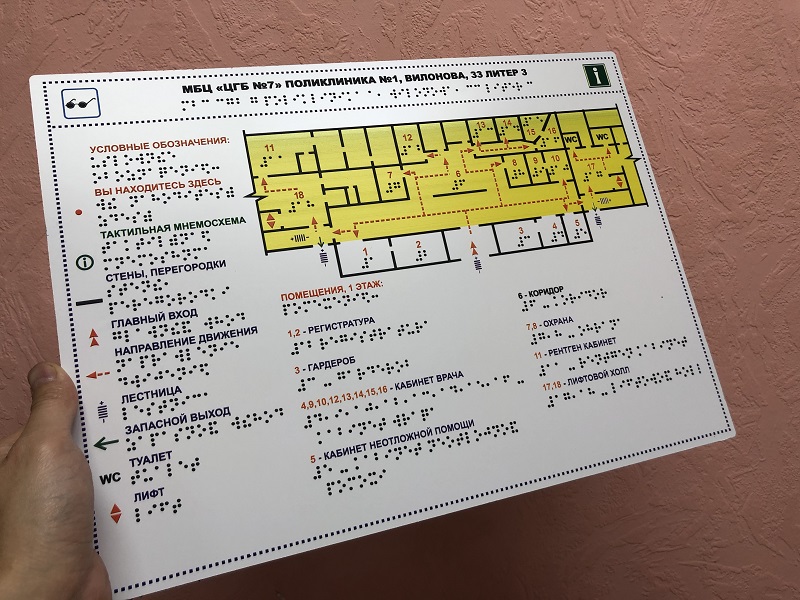 МБЦ «ЦГБ №7» ПОЛИКЛИНИКА №1, ВИЛОНОВА, 33 ЛИТЕР 3
i
УСЛОВНЫЕ ОБОЗНАЧЕНИЯ:
ВЫ НАХОДИТЕСЬ ЗДЕСЬ
ТАКТИЛЬНАЯ МНЕМОСХЕМА
СТЕНЫ, ПЕРЕГОРОДКИ
ГЛАВНЫЙ ВХОД
НАПРАВЛЕНИЕ ДВИЖЕНИЯ
ЛЕСТНИЦА
ЗАПАСНОЙ ВЫХОД
WC ТУАЛЕТ
ЛИФТ
11 12 13 14 15 16 WC WC
18 7 6 8 9 10 17
1 2 3 4 5
ПОМЕЩЕНИЯ, 1 ЭТАЖ:
1,2 - РЕГИСТРАТУРА
3 - ГАРДЕРОБ
4,9,10,12,13,14,15,16 - КАБИНЕТ ВРАЧА
5 - КАБИНЕТ НЕОТЛОЖНОЙ ПОМОЩИ
6 - КОРИДОР
7,8 - ОХРАНА
11 - РЕНТГЕН КАБИНЕТ
17,18 - ЛИФТОВОЙ ХОЛЛ